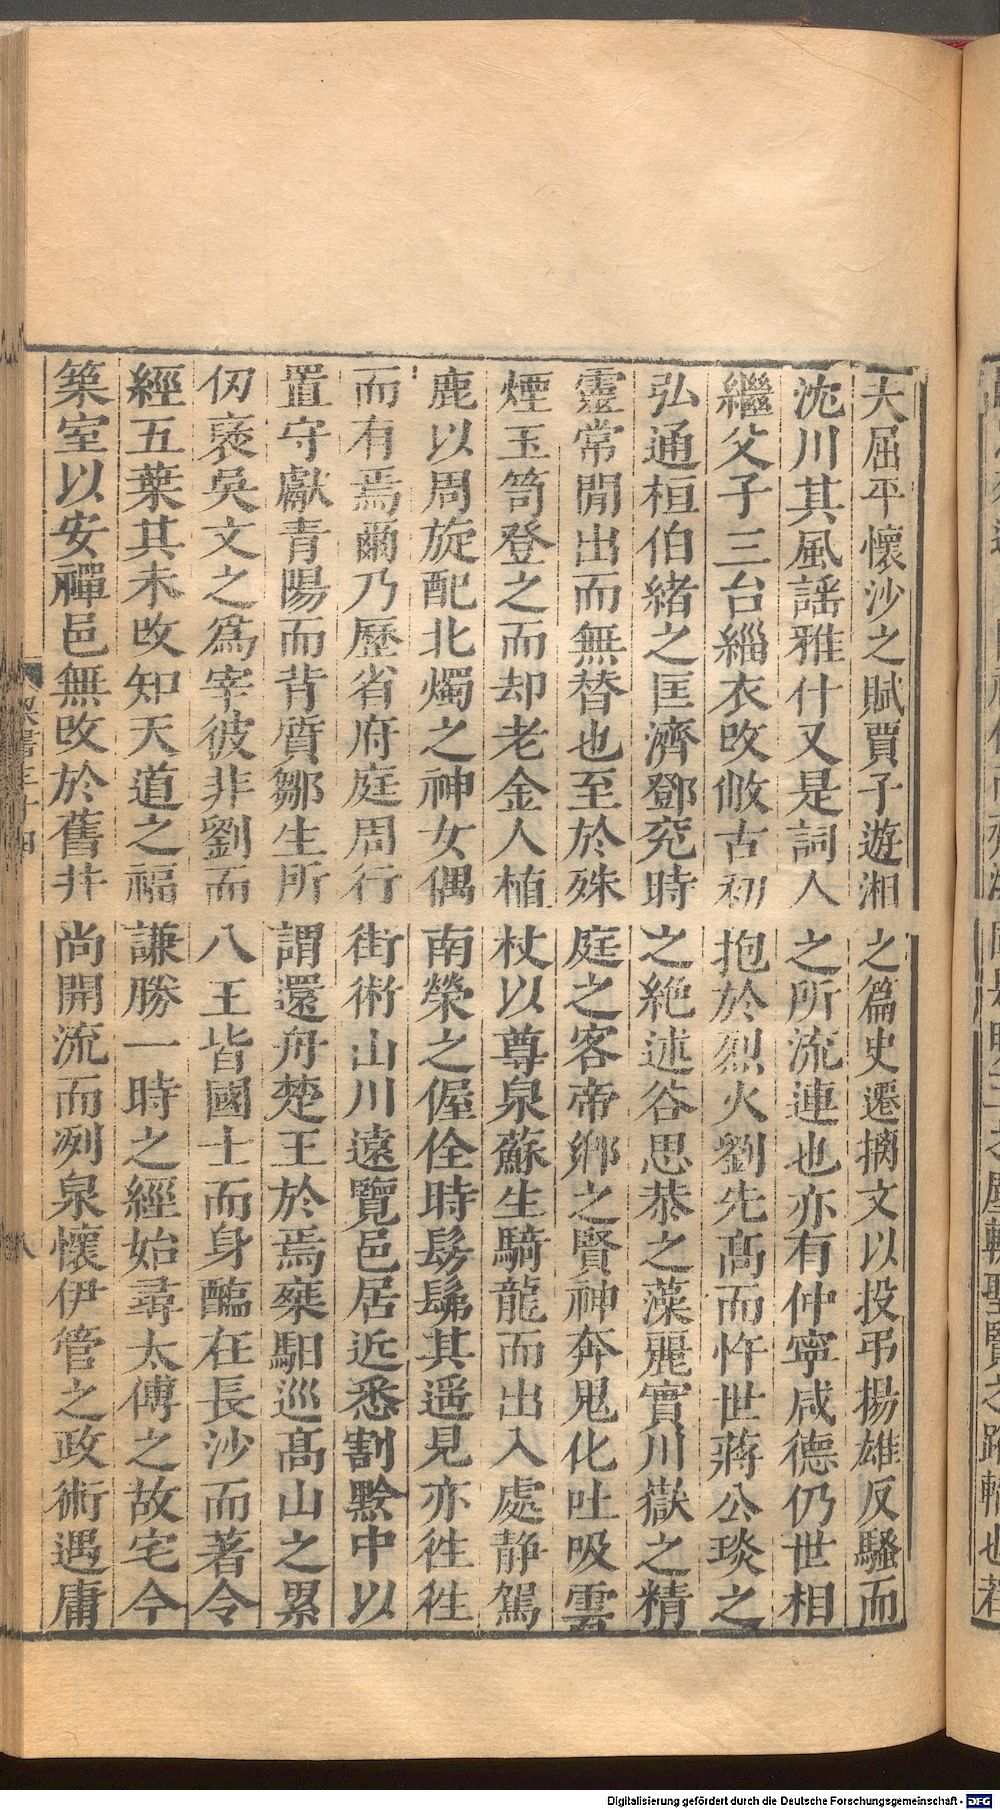 大屈平懷沙之賦賈子遊湘之篇史遷摛文以投弔揚雄反騷而
沈川其風謠雅什又是詞人之所流連也亦有仲寧咸德仍世相
繼父子三台緇衣攺倣古初抱於烈火劉先髙而忤世蔣公琰之
弘通桓伯緒之匡濟鄧兖時之絶述谷思恭之藻麗實川嶽之精
靈常閒出而無替也至於殊庭之客帝鄉之賢神奔鬼化吐吸雲
煙玉笥登之而却老金人植杖以尊泉蘇生騎龍而出入處静駕
鹿以周旋配北燭之神女偶南榮之偓佺時髣髴其遥見亦徃徃
而有焉爾乃歷省府庭周行街術山川遠覽邑居近悉割黔中以
置守獻青陽而背質鄒生所謂還舟楚王於焉乗馹巡髙山之累
仭襃吳文之爲宰彼非劉而八王皆國士而身醢在長沙而著令
經五葉其未攺知天道之福謙勝一時之經始尋太傅之故宅今
築室以安禪邑無攺於舊井尚開流而洌泉懷伊管之政術遇庸
八
Digitalisierung gefördert durch die Deutsche Forschungsgemeinschaft - DFG